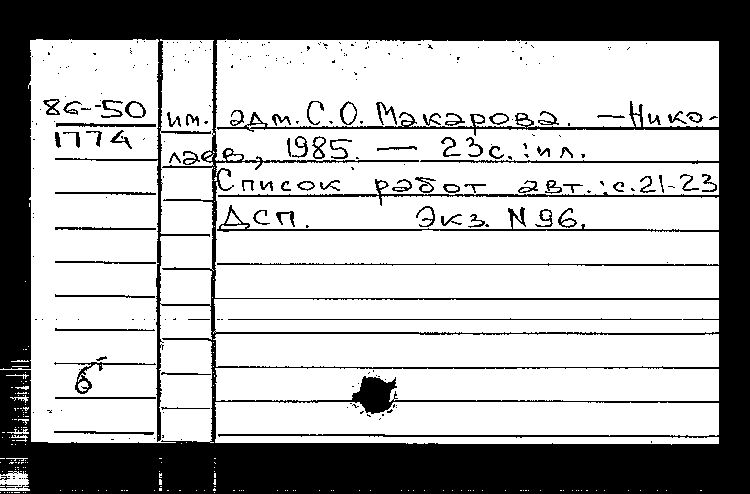 86-50 им. адм. С.О. Макарова. — Нико-
1774 лаев, 1985. — 23с.: ил.
Список работ авт.: с. 21-23
Дсп. Экз. N 96.
б